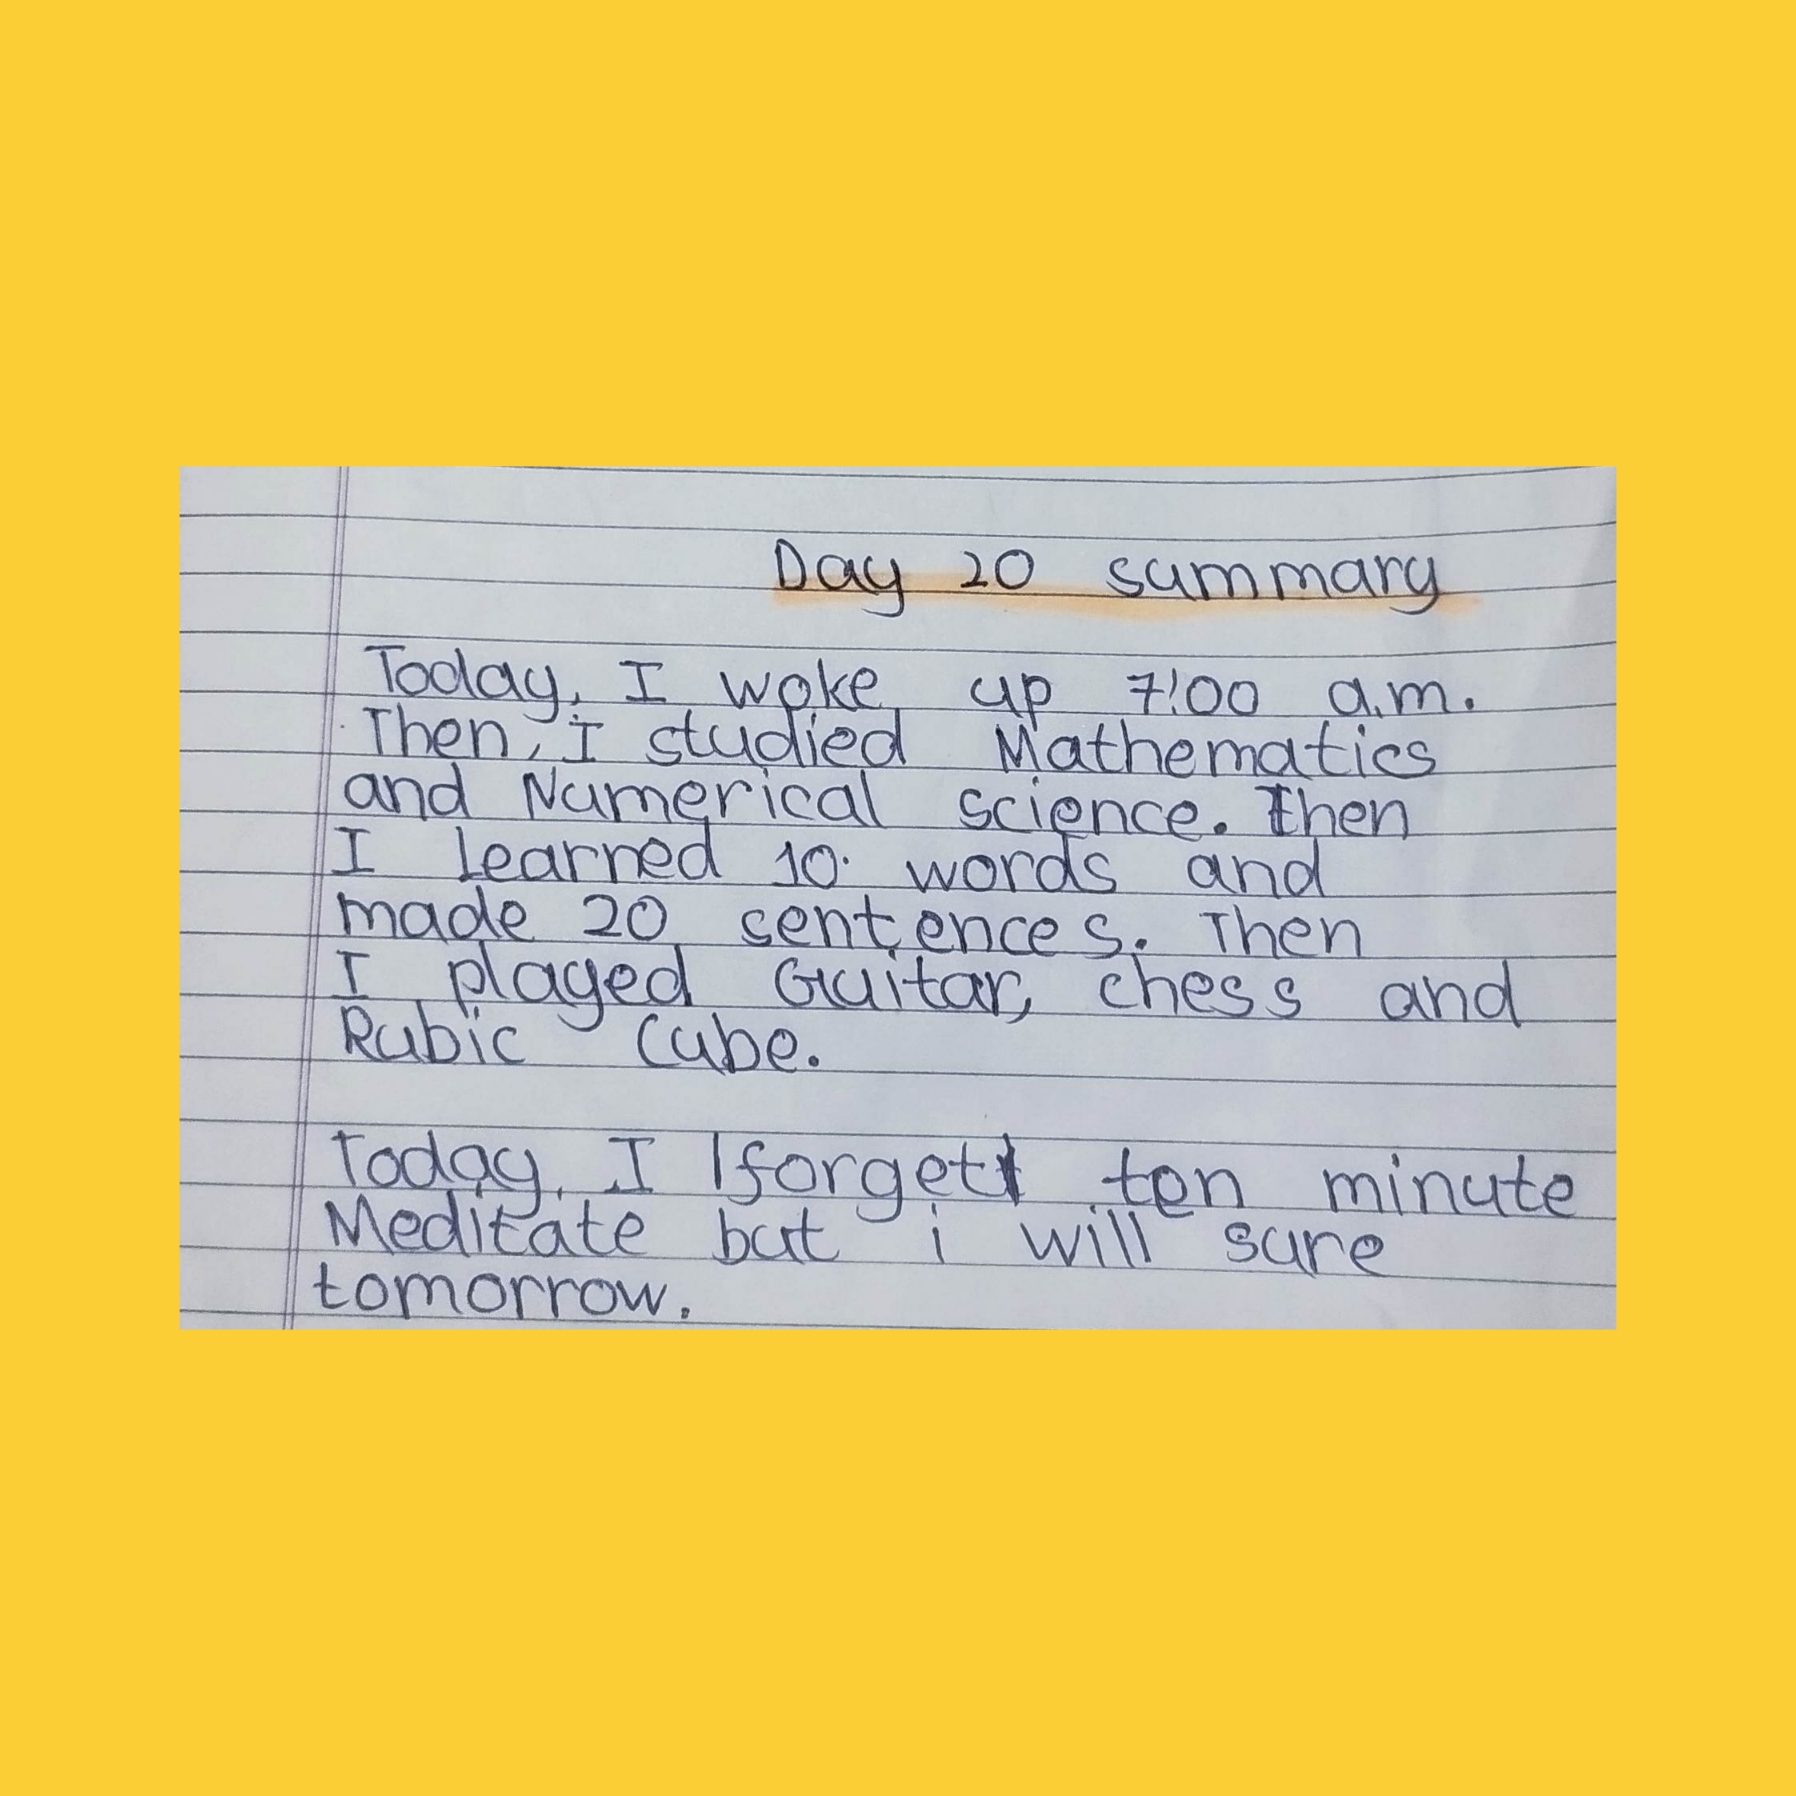 Day 20 summary
Today, I woke up 7:00 a.m.
Then, I studied Mathematics
and Numerical science. Then
I learned 10 words and
made 20 sentences. Then
I played Guitar, chess and
Rubic Cube.
Today, I forget ten minute
Meditate but i will sure
tomorrow.